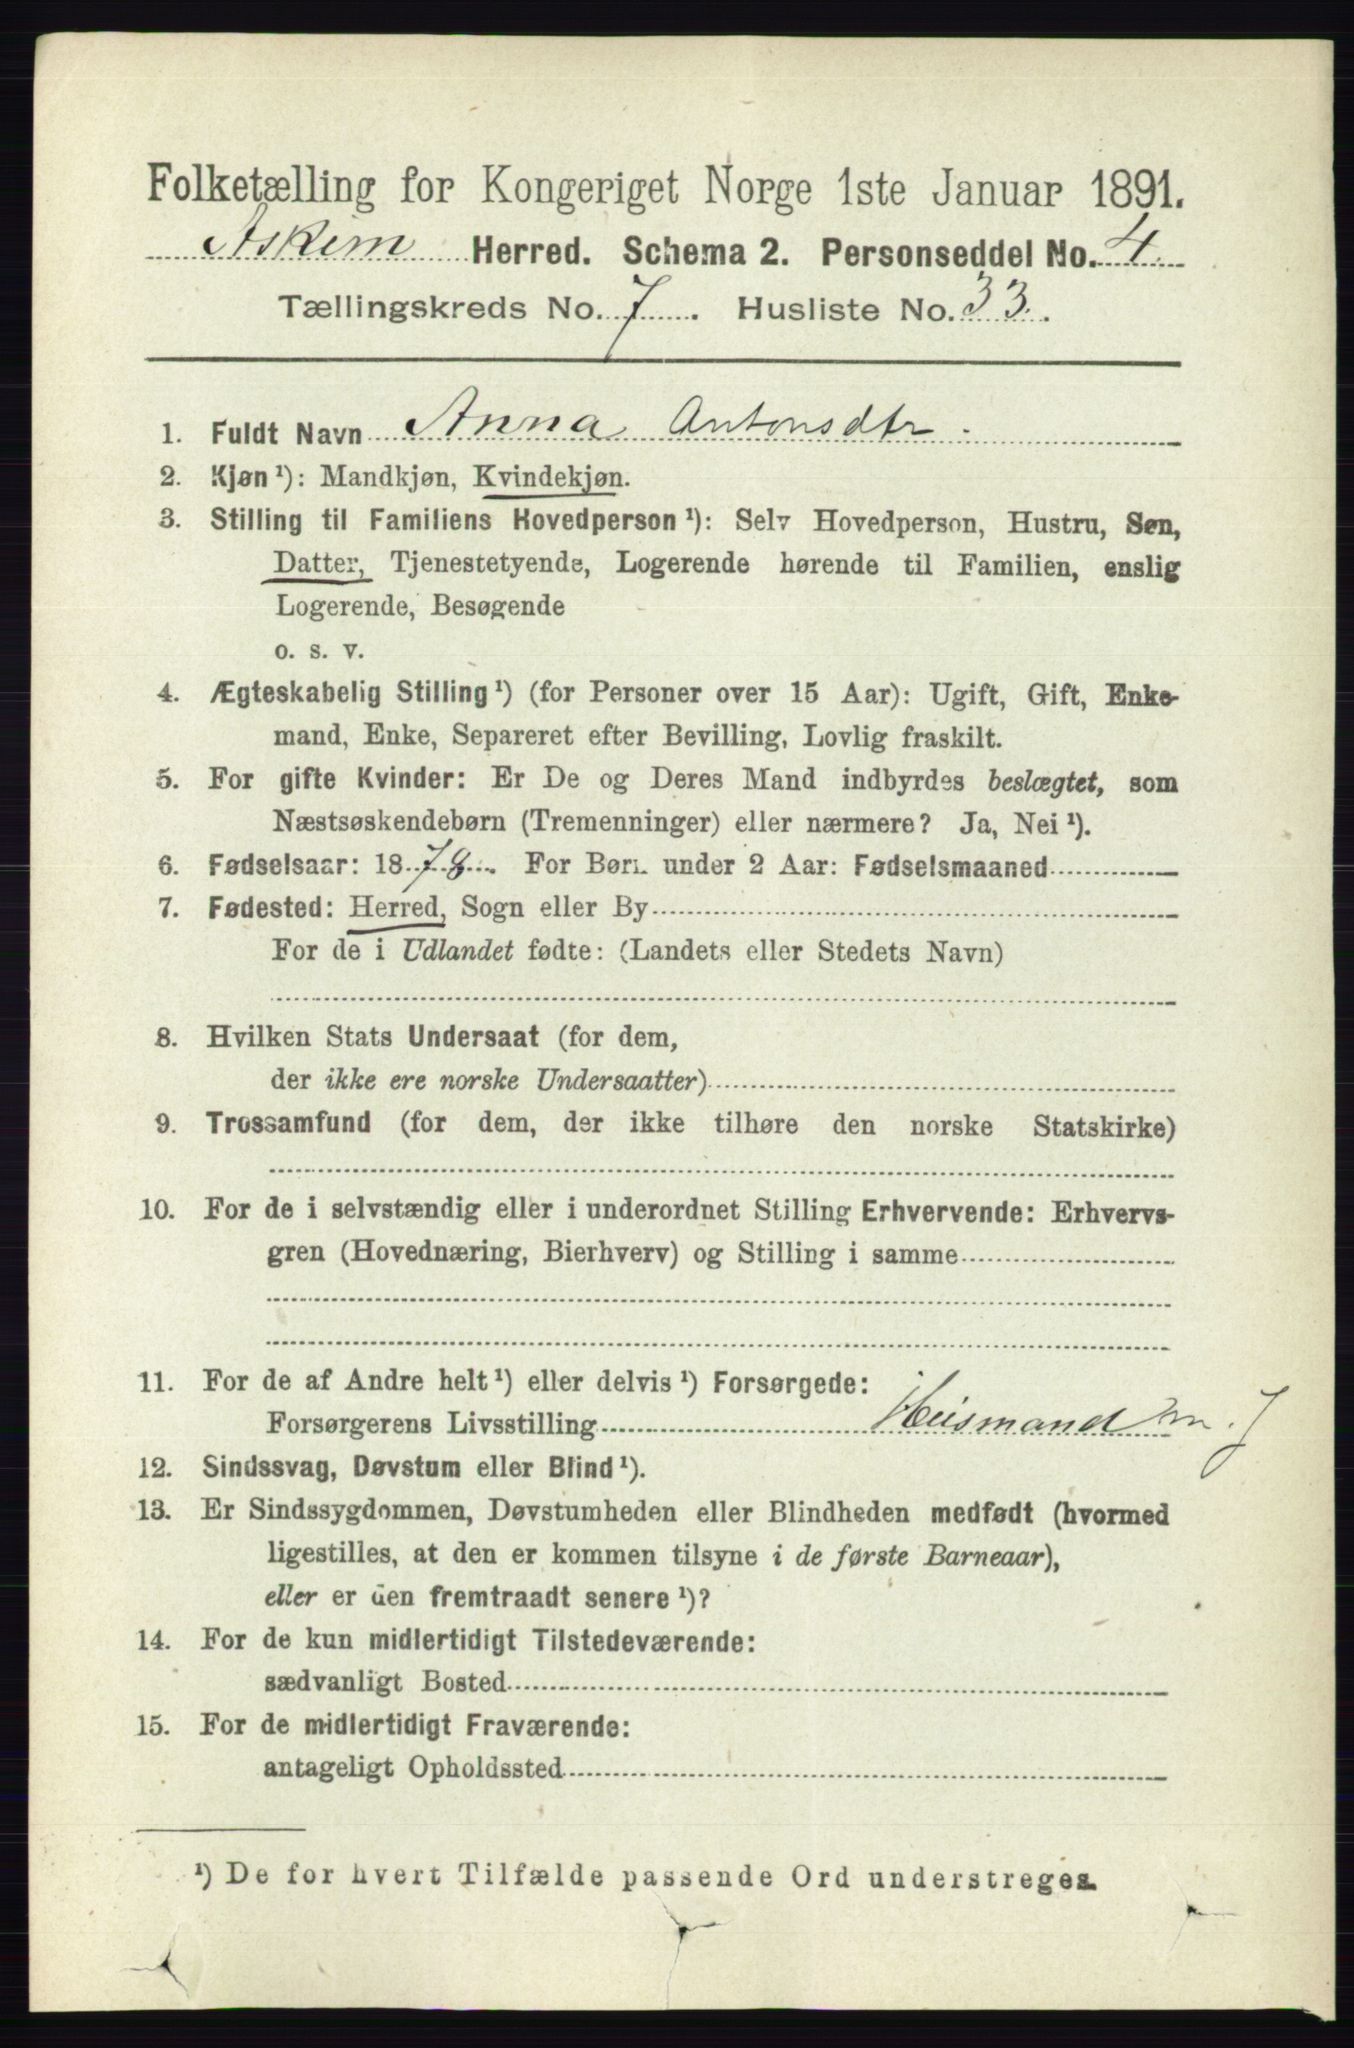 Folketælling for Kongeriget Norge 1ste Januar 1891.
Askim Herred. Schema 2. Personseddel No. 4
Tællingskreds No. 7. Husliste No. 33.
1. Fuldt Navn Anna Antonsdtr.
2. Kjøn¹): Mandkjøn, Kvindekjøn.
3. Stilling til Familiens Hovedperson¹): Selv Hovedperson, Hustru, Søn,
Datter, Tjenestetyende, Logerende hørende til Familien, enslig
Logerende, Besøgende
o. s. v.
4. Ægteskabelig Stilling¹) (for Personer over 15 Aar): Ugift, Gift, Enke-
mand, Enke, Separeret efter Bevilling, Lovlig fraskilt.
5. For gifte Kvinder: Er De og Deres Mand indbyrdes beslægtet, som
Næstsøskendebørn (Tremenninger) eller nærmere? Ja, Nei¹).
6. Fødselsaar: 1878. For Børn under 2 Aar: Fødselsmaaned
7. Fødested: Herred, Sogn eller By
For de i Udlandet fødte: (Landets eller Stedets Navn)
8. Hvilken Stats Undersaat (for dem,
der ikke ere norske Undersaatter)
9. Trossamfund (for dem, der ikke tilhøre den norske Statskirke)
10. For de i selvstændig eller i underordnet Stilling Erhvervende: Erhvervs-
gren (Hovednæring, Bierhverv) og Stilling i samme
11. For de af Andre helt¹) eller delvis¹) Forsørgede:
Forsørgerens Livsstilling Husmand m. J
12. Sindssvag, Døvstum eller Blind¹).
13. Er Sindssygdommen, Døvstumheden eller Blindheden medfødt (hvormed
ligestilles, at den er kommen tilsyne i de første Barneaar),
eller er den fremtraadt senere¹)?
14. For de kun midlertidigt Tilstedeværende:
sædvanligt Bosted
15. For de midlertidigt Fraværende:
antageligt Opholdssted
¹) De for hvert Tilfælde passende Ord understreges.